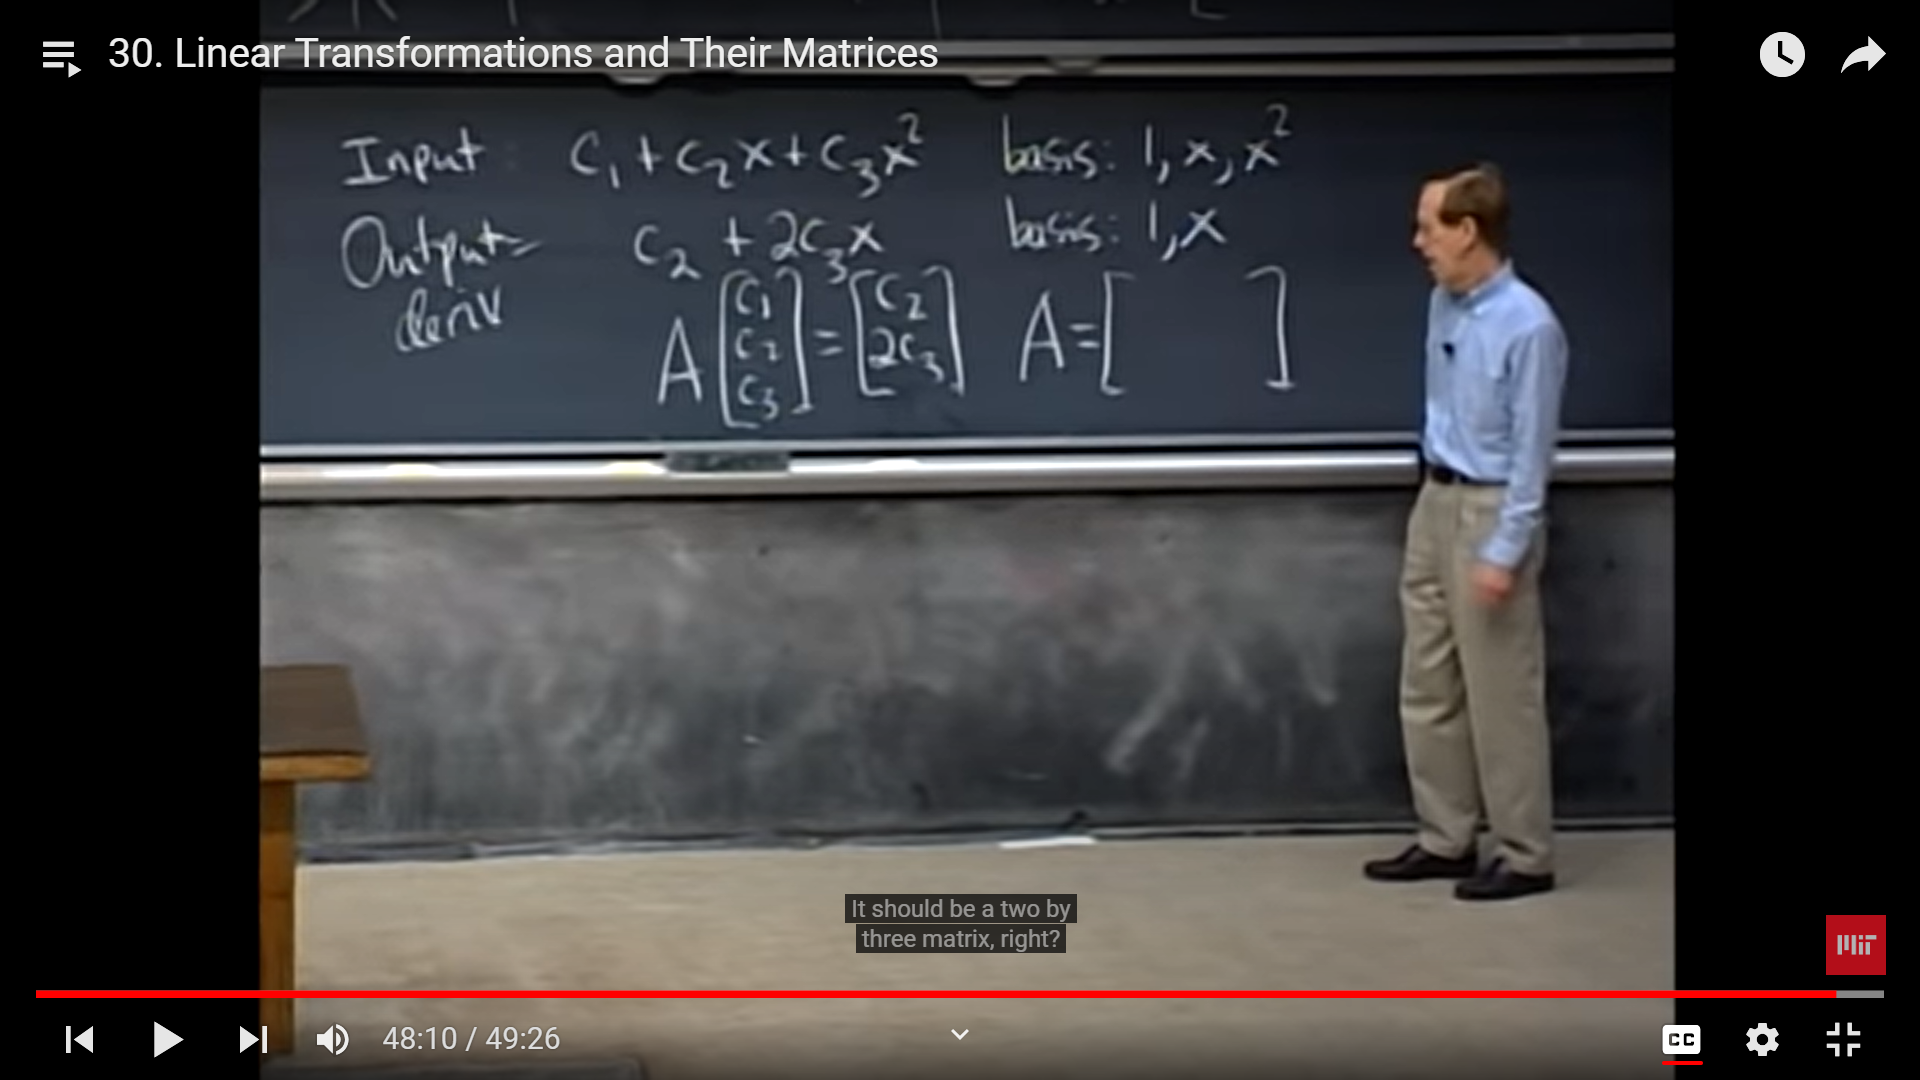 30. Linear Transformations and Their Matrices
Input: c₁ + c₂x + c₃x² basis: 1, x, x²
Output = c₂ + 2c₃x basis: 1, x
deriv
A [c₁ c₂ c₃] = [c₂ 2c₃] A = [ ]
It should be a two by
three matrix, right?
MIT
48:10 / 49:26
CC